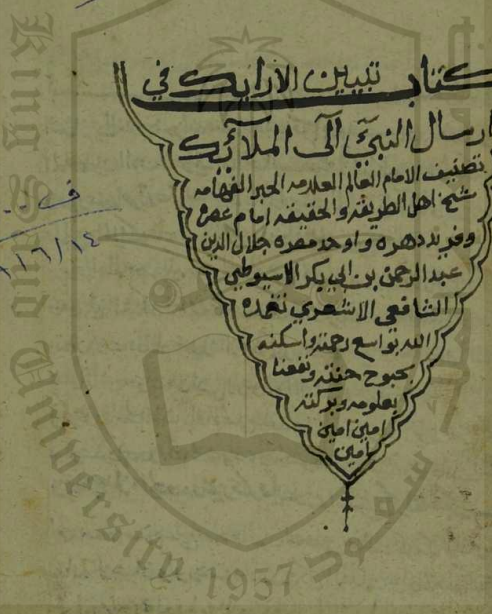 كتاب تبيين الارايك في
ارسال النبي الى الملائك
تصنيف الامام العالم العلامه الحبر الفهامه
شيخ اهل الطريقه والحقيقه امام عصره
وفريد دهره واوحد مصره جلال الدين
عبد الرحمن بن ابي بكر الاسيوطي
الشافعي الاشعري تغمده
الله بواسع رحمته واسكنه
بحبوح جنته ونفعنا
بعلومه وبركته
امين امين
امين
ف
١١٦/١٤
King Saud University
1957